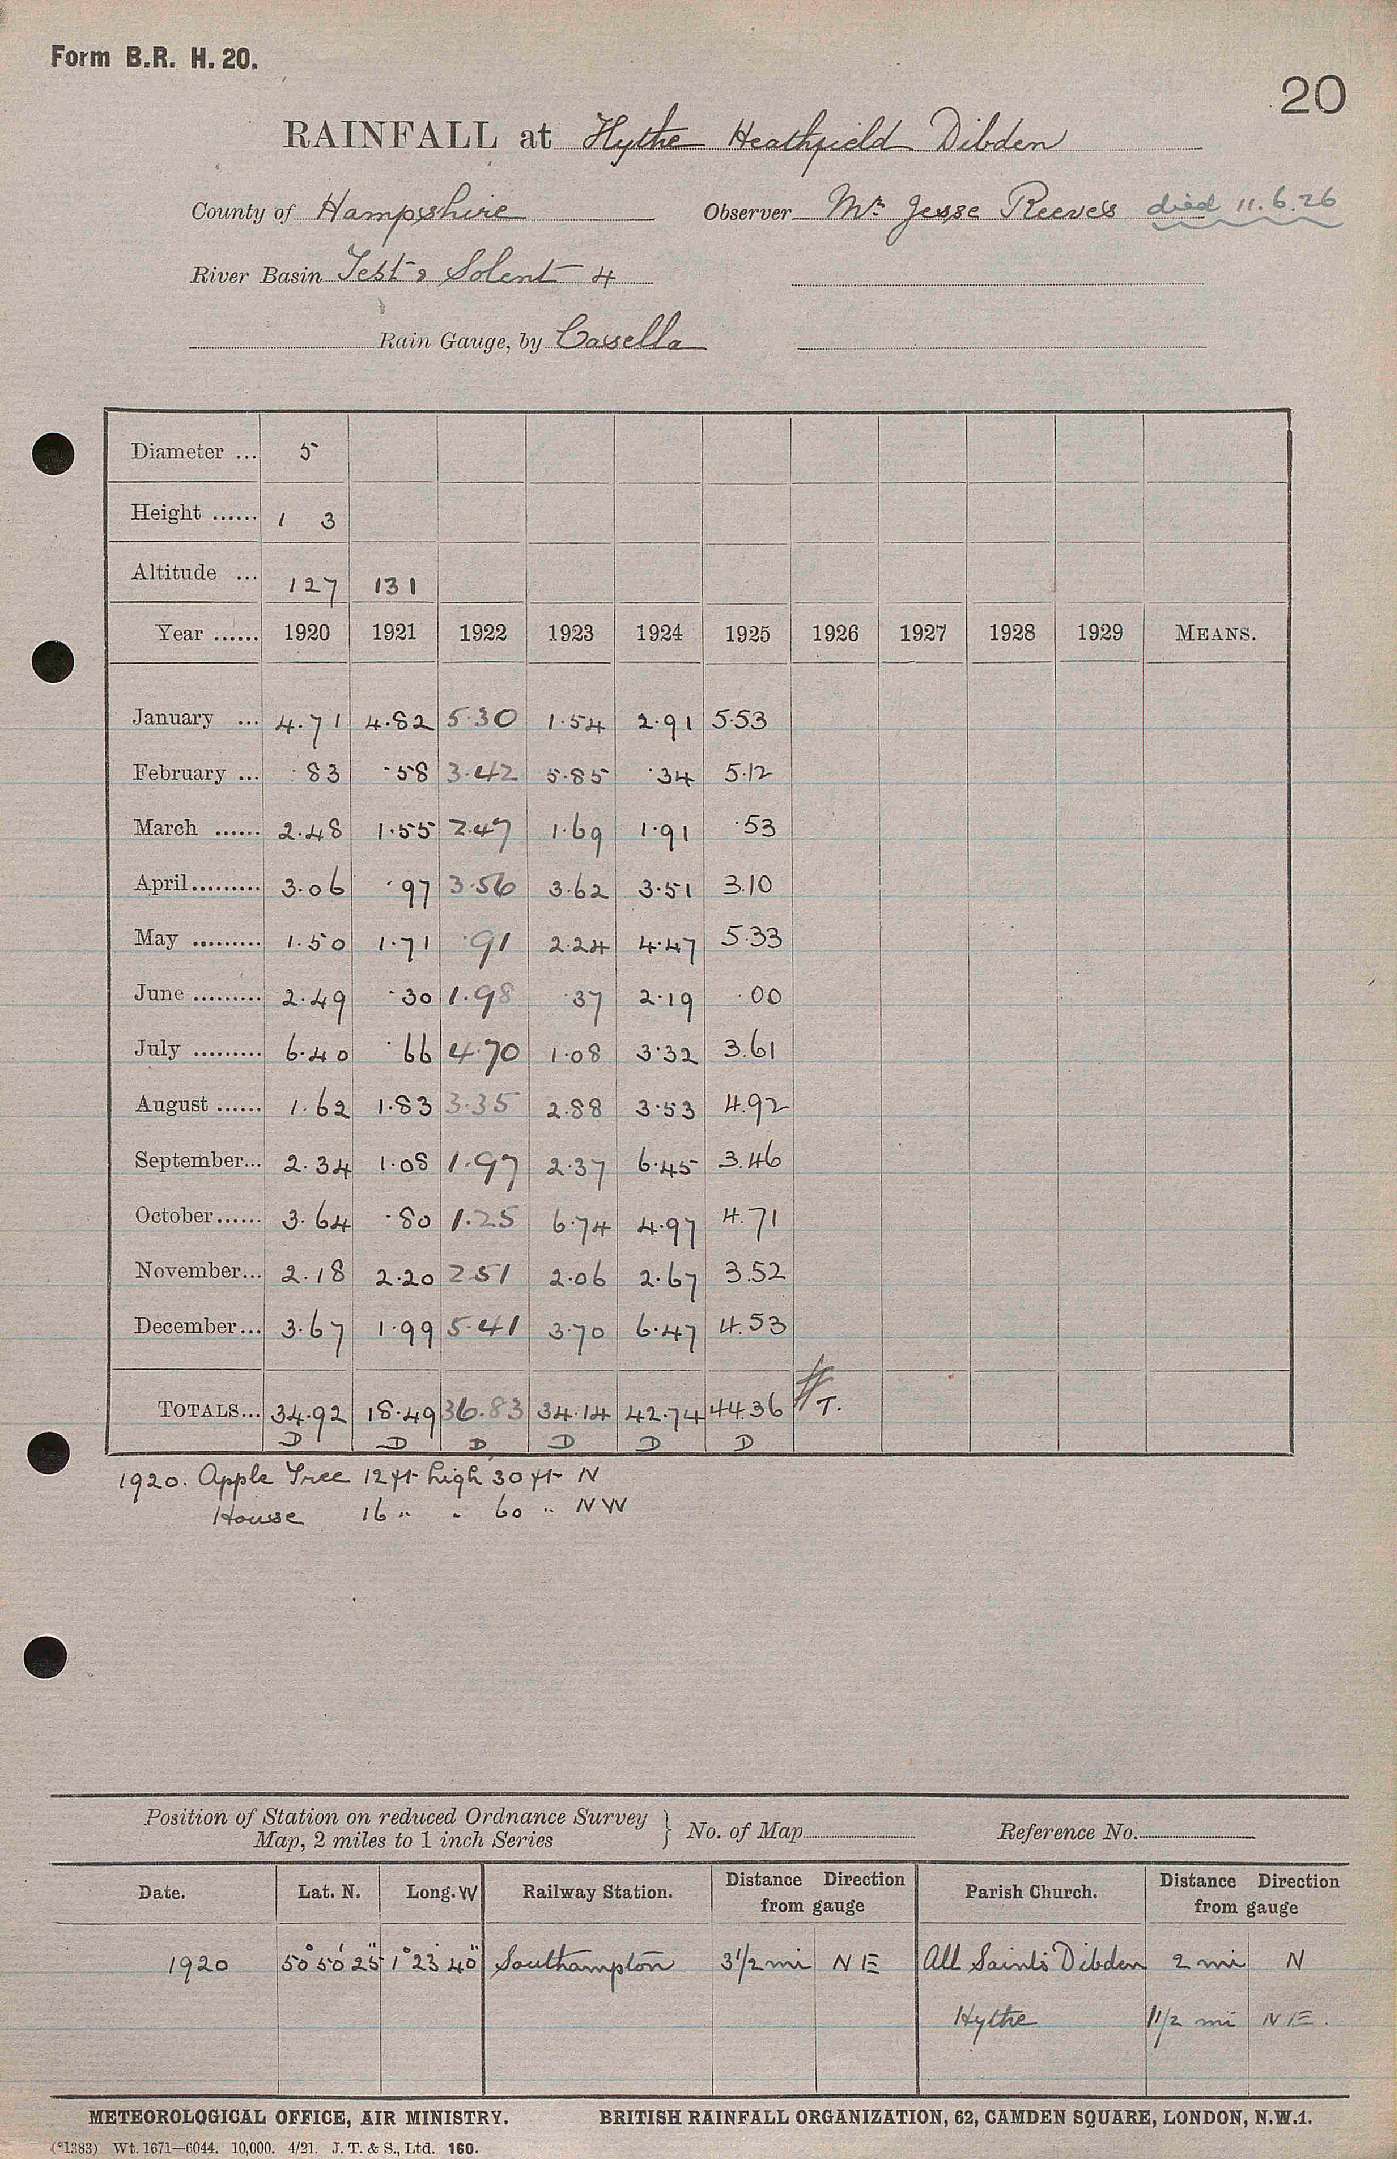 Form B.R. H. 20.
20
RAINFALL at Hythe Heathfield Dibden
County of Hampshire Observer Mr Jesse Reeves died 11.6.26
River Basin Test & Solent 4
Rain Gauge, by Casella
Diameter ... 5
Height ...... 1 3
Altitude ... 127 131
Year ...... 1920 1921 1922 1923 1924 1925 1926 1927 1928 1929 MEANS.
January ... 4.71 4.82 5.30 1.54 2.91 5.53
February ... .83 .58 3.42 5.85 .34 5.12
March ...... 2.48 1.55 2.47 1.69 1.91 .53
April......... 3.06 .97 3.56 3.62 3.51 3.10
May ......... 1.50 1.71 .91 2.24 4.47 5.33
June ......... 2.49 .30 1.98 .37 2.19 .00
July ......... 6.40 .66 4.70 1.08 3.32 3.61
August ...... 1.62 1.83 3.35 2.88 3.53 4.92
September... 2.34 1.08 1.97 2.37 6.45 3.46
October...... 3.64 .80 1.25 6.74 4.97 4.71
November... 2.18 2.20 2.51 2.06 2.67 3.52
December... 3.67 1.99 5.41 3.70 6.47 4.53
TOTALS... 34.92 18.49 36.83 34.14 42.74 44.36 T.
D D D D D D
1920. Apple Tree 12 ft high 30 ft N
House 16 " " 60 " NW
Position of Station on reduced Ordnance Survey
Map, 2 miles to 1 inch Series } No. of Map Reference No.
Date. Lat. N. Long. W Railway Station. Distance Direction from gauge Parish Church. Distance Direction from gauge
1920 50° 50' 25" 1° 23' 40" Southampton 3 1/2 mi NE All Saints Dibden 2 mi N
Hythe 1 1/2 mi NE.
METEOROLOGICAL OFFICE, AIR MINISTRY. BRITISH RAINFALL ORGANIZATION, 62, CAMDEN SQUARE, LONDON, N.W.1.
(*1383) Wt. 1671—6044. 10,000. 4/21. J. T. & S., Ltd. 160.